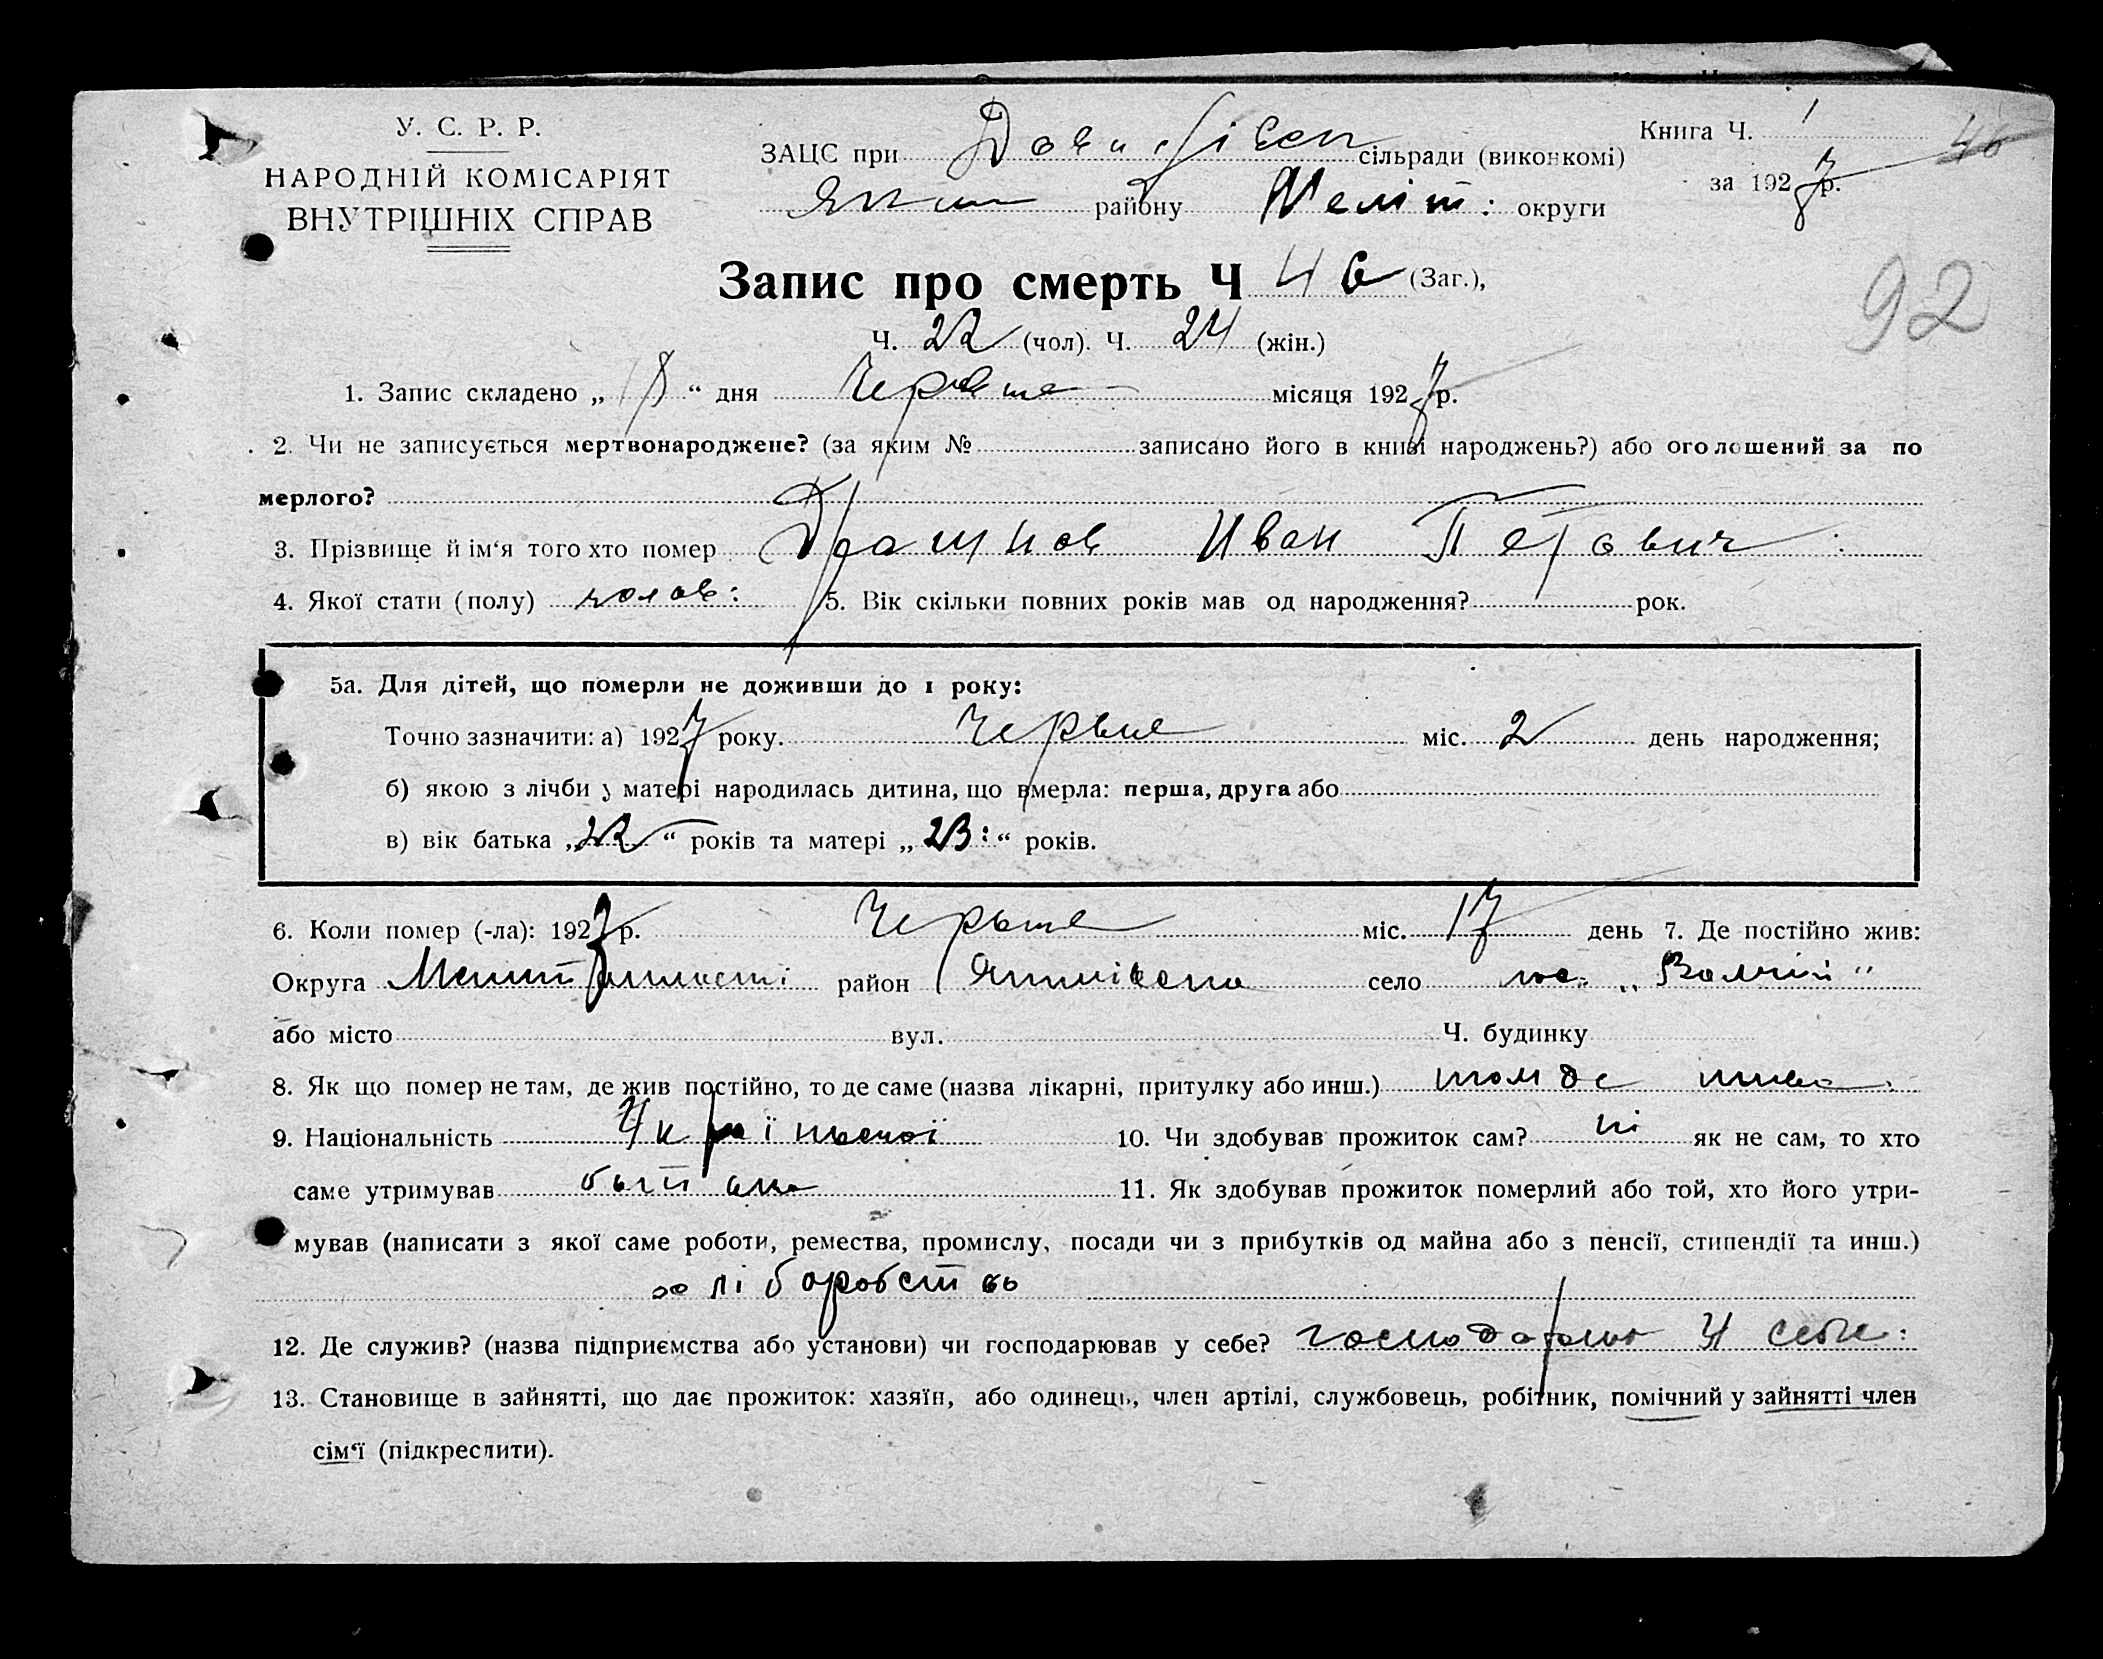 У. С. Р. Р.
НАРОДНІЙ КОМІСАРІЯТ
ВНУТРІШНІХ СПРАВ
Книга Ч. 1
46
ЗАЦС при сільради (виконкомі)
за 1927 р.
району Меліт: округи
Запис про смерть Ч 46 (Заг.),
92
Ч. 22 (чол). Ч. 24 (жін.)
1. Запис складено „18“ дня Червня місяця 1927 р.
2. Чи не записується мертвонароджене? (за яким № записано його в книзі народжень?) або оголошений за по
мерлого?
3. Прізвище й ім‘я того хто помер Иван Петрович
4. Якої стати (полу) чолов: 5. Вік скільки повних років мав од народження? рок.
5а. Для дітей, що померли не доживши до 1 року:
Точно зазначити: а) 1927 року. Червня міс. 2 день народження;
б) якою з лічби у матері народилась дитина, що вмерла: перша, друга або
в) вік батька „22“ років та матері „23:“ років.
6. Коли помер (-ла): 1927 р. Червня міс. 17 день 7. Де постійно жив:
Округа район село
або місто вул. Ч. будинку
8. Як що помер не там, де жив постійно, то де саме (назва лікарні, притулку або инш.)
9. Національність 10. Чи здобував прожиток сам? ні як не сам, то хто
саме утримував батько 11. Як здобував прожиток померлий або той, хто його утри-
мував (написати з якої саме роботи, ремества, промислу, посади чи з прибутків од майна або з пенсії, стипендії та инш.)
хліборобство
12. Де служив? (назва підприємства або установи) чи господарював у себе? у себе:
13. Становище в зайнятті, що дає прожиток: хазяїн, або одинець, член артілі, службовець, робітник, помічний у зайнятті член
сім‘ї (підкреслити).